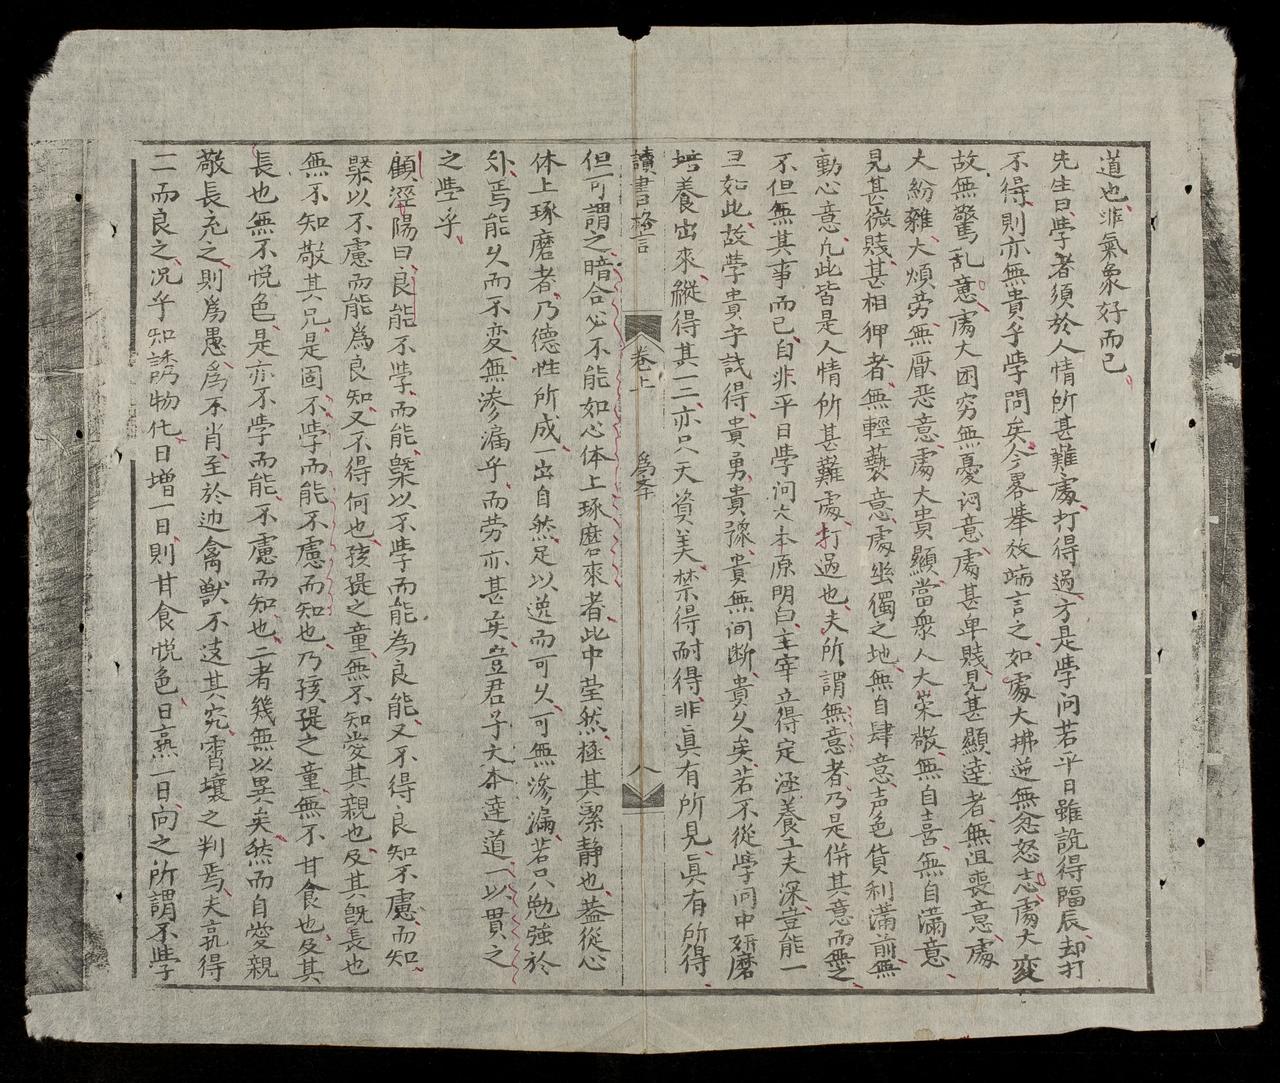 道也非氣象好而已
先生曰學者須於人情所甚難處打得過方是學问若平日雖說得臨辰却打
不得則亦無貴乎學問矣今畧舉效端言之如處大拂逆無忿怒志處大変
故無驚乱意處大困穷無憂诃意處甚卑賤見甚顯達者無沮喪意處
大紛雜大煩劳無厭恶意處大貴顯當衆人大荣敬無自喜無自滿意
見甚微賤甚相狎者無輕藝意處幽獨之地無自肆意声色貨利滿前無
動心意凡此皆是人情所甚難處打過也夫所謂無意者乃是併其意而無之
不但無其事而已自非平日學问大本原明白主宰立得定涵養工夫深豈能一
一如此故學貴乎識得貴勇貴豫貴無间断貴久矣若不從學问中研磨
培養出來縱得其一二亦只天資美禁得耐得非眞有所見眞有所得
讀書格言 卷上 為学 八
但可謂之暗合必不能如心体上琢磨來者此中莹然極其潔静也葢從心
体上琢磨者乃德性所成一出自然足以逸而可久可無渗漏若只勉強於
外焉能久而不変無渗漏乎而劳亦甚矣豈君子大本達道一以貫之
之學乎
顧涇陽曰良能不學而能槩以不學而能為良能又不得良知不慮而知
槩以不慮而能爲良知又不得何也孩提之童無不知愛其親也及其既長也
無不知敬其兄是固不學而能不慮而知也乃孩提之童無不甘食也及其
長也無不悦色是亦不學而能不慮而知也二者幾無以異矣然而自愛親
敬長充之則爲愚爲不肖至於迯禽獸不逺其究霄壤之判焉夫孰得
二而良之况乎知誘物化日增一日則甘食悦色日熹一日向之所謂不學